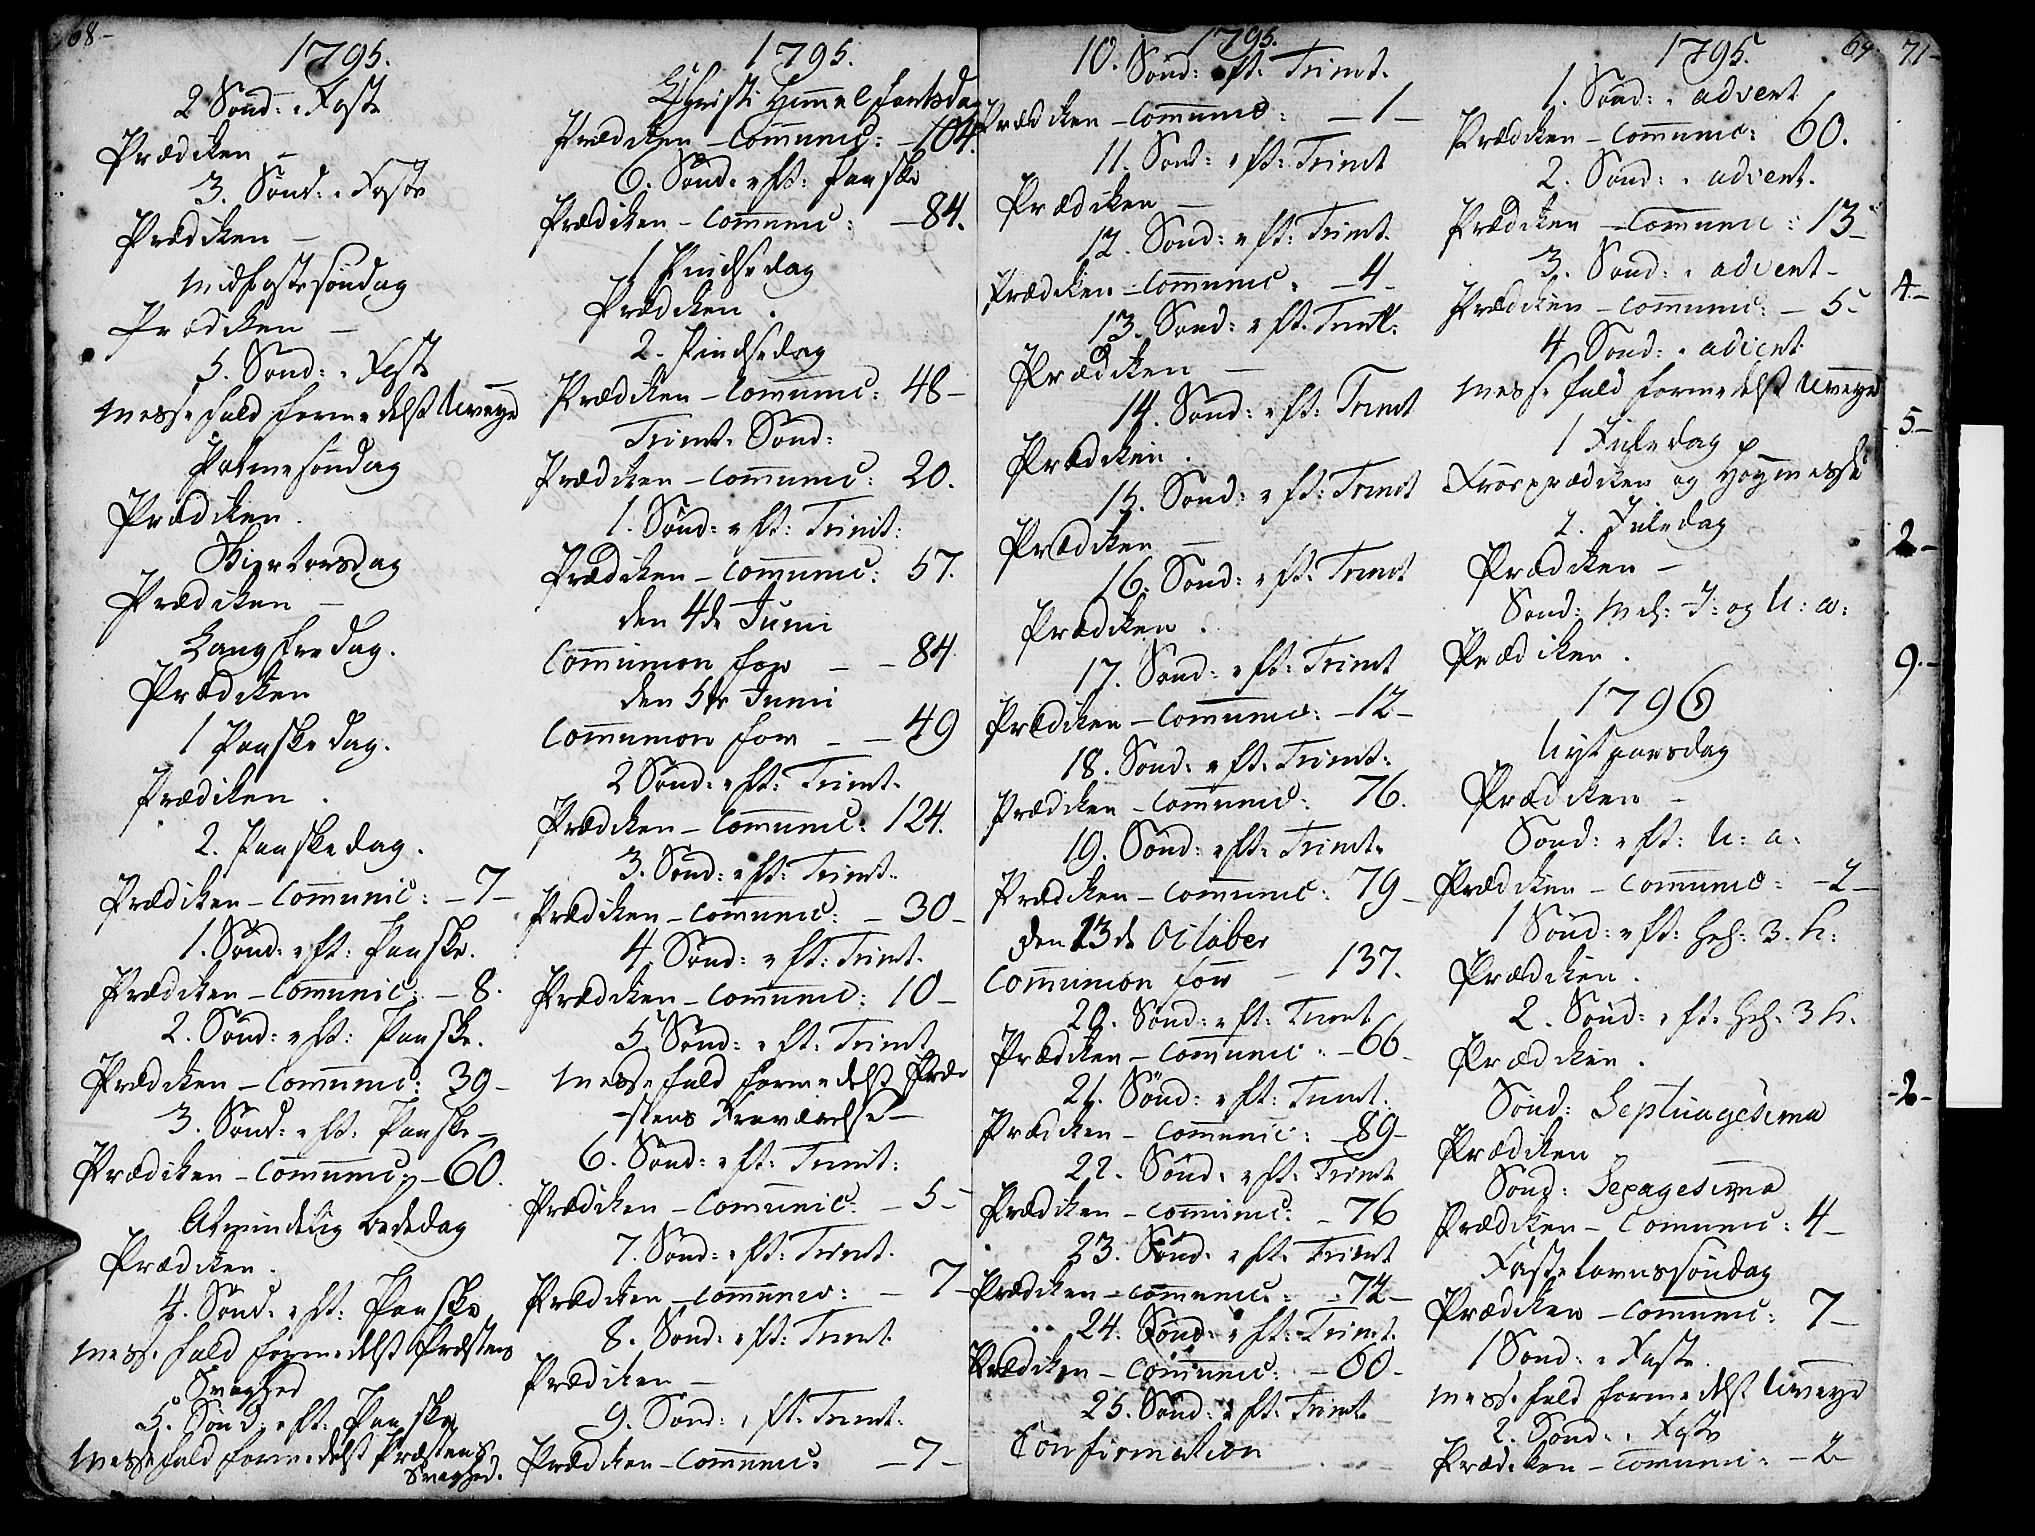 68-
1795.
2 Sønd: i Faste
Prædiken -
3. Sønd: i Faste
Prædiken -
Midfastesøndag
Prædiken -
5. Sønd: i Faste
Messefald formedelst Uveyr
Palmesøndag
Prædiken.
Skiertorsdag
Prædiken -
Langfredag.
Prædiken
1 Paaskedag.
Prædiken.
2. Paaskedag.
Prædiken - Communic: - 7 -
1. Sønd: eft: Paaske.
Prædiken - Communic: - 8.
2. Sønd: eft: Paaske.
Prædiken - Communic: 39 -
3. Sønd: eft: Paaske -
Prædiken - Communic: - 60.
Almindelig Bededag
Prædiken.
4. Sønd: eft: Paaske
Messefald formedelst Præstens
Svaghed
5. Sønd: eft: Paaske
Messefald formedelst Præstens
Svaghed.
1795.
Christi Himmelfartsdag
Prædiken - Communic: - 104.
6. Sønd: eft: Paaske
Prædiken - Communic: - 84.
1 Pindsedag
Prædiken.
2. Pindsedag
Prædiken - Communic: 48 -
Trinit. Sønd:
Prædiken - Communic: 20.
1. Sønd: eft: Trinit:
Prædiken - Communic: 57.
den 4de Junii
Communion for - - 84.
den 5te Junii
Communion for - - 49
2 Sønd: eft: Trinit.
Prædiken - Communic: 124.
3. Sønd: eft: Trinit.
Prædiken - Communic: - 30 -
4. Sønd: eft: Trinit.
Prædiken - Communic: 10 -
5. Sønd: eft: Trinit
Messefald formedelst Præ-
stens Fraværelse -
6. Sønd: eft: Trinit:
Prædiken - Communic: - 5 -
7. Sønd: eft: Trinit.
Prædiken - Communic: - 7 -
8. Sønd: eft: Trinit.
Prædiken -
9. Sønd: eft: Trinit:
Prædiken - Communic: - 7 -
1795.
10. Sønd: eft: Trinit.
Prædiken - Communic: - 1 -
11. Sønd: eft: Trinit
Prædiken -
12. Sønd: eft: Trinit.
Prædiken - Communic: - 4 -
13. Sønd: eft: Trinit:
Prædiken -
14. Sønd: eft: Trinit
Prædiken.
15. Sønd: eft: Trinit
Prædiken -
16. Sønd: eft: Trinit
Prædiken.
17. Sønd: eft: Trinit
Prædiken - Communic: - 12 -
18. Sønd: eft: Trinit:
Prædiken - Communic: 76.
19. Sønd: eft: Trinit.
Prædiken - Communic: 79 -
den 13de October
Communion for - 137.
20. Sønd: eft: Trinit
Prædiken - Communic: - 66 -
21. Sønd: eft: Trinit.
Prædiken - Communic: - 89 -
22. Sønd: eft: Trinit
Prædiken - Communic: - 76
23. Sønd: eft: Trinit
Prædiken - Communic: - 72 -
24. Sønd: eft: Trinit.
Prædiken - Communic: - 60 -
25. Sønd: eft: Trinit
Confirmation
1795. 69
1. Sønd: i advent
Prædiken - Communic: 60.
2. Sønd: i advent.
Prædiken - Communic: 13 -
3. Sønd: i advent -
Prædiken - Communic: - 5 -
4 Sønd: i advent
Messefald formedelst Uveyr
1 Juledag
Froeprædiken og Høymesse
2. Juledag
Prædiken -
Sønd: Mel: J: og N: A:
Prædiken.
1796
Nytaarsdag
Prædiken -
Sønd: eft: N: A:
Prædiken - Communic: - 2 -
1 Sønd: eft: Hel: 3. K:
Prædiken.
2. Sønd: eft: Hel: 3 K.
Prædiken.
Sønd: Septuagesima
Prædiken
Sønd: Sexagesima
Prædiken - Communic: 4 -
Fastelavnssøndag
Prædiken - Communic: 7 -
1 Sønd: i Faste.
Messefald formedelst Uveyr
2. Sønd: i Faste
Prædiken - Communic: - 2 -
71-
4 -
5 -
2 -
9. -
- 2 -